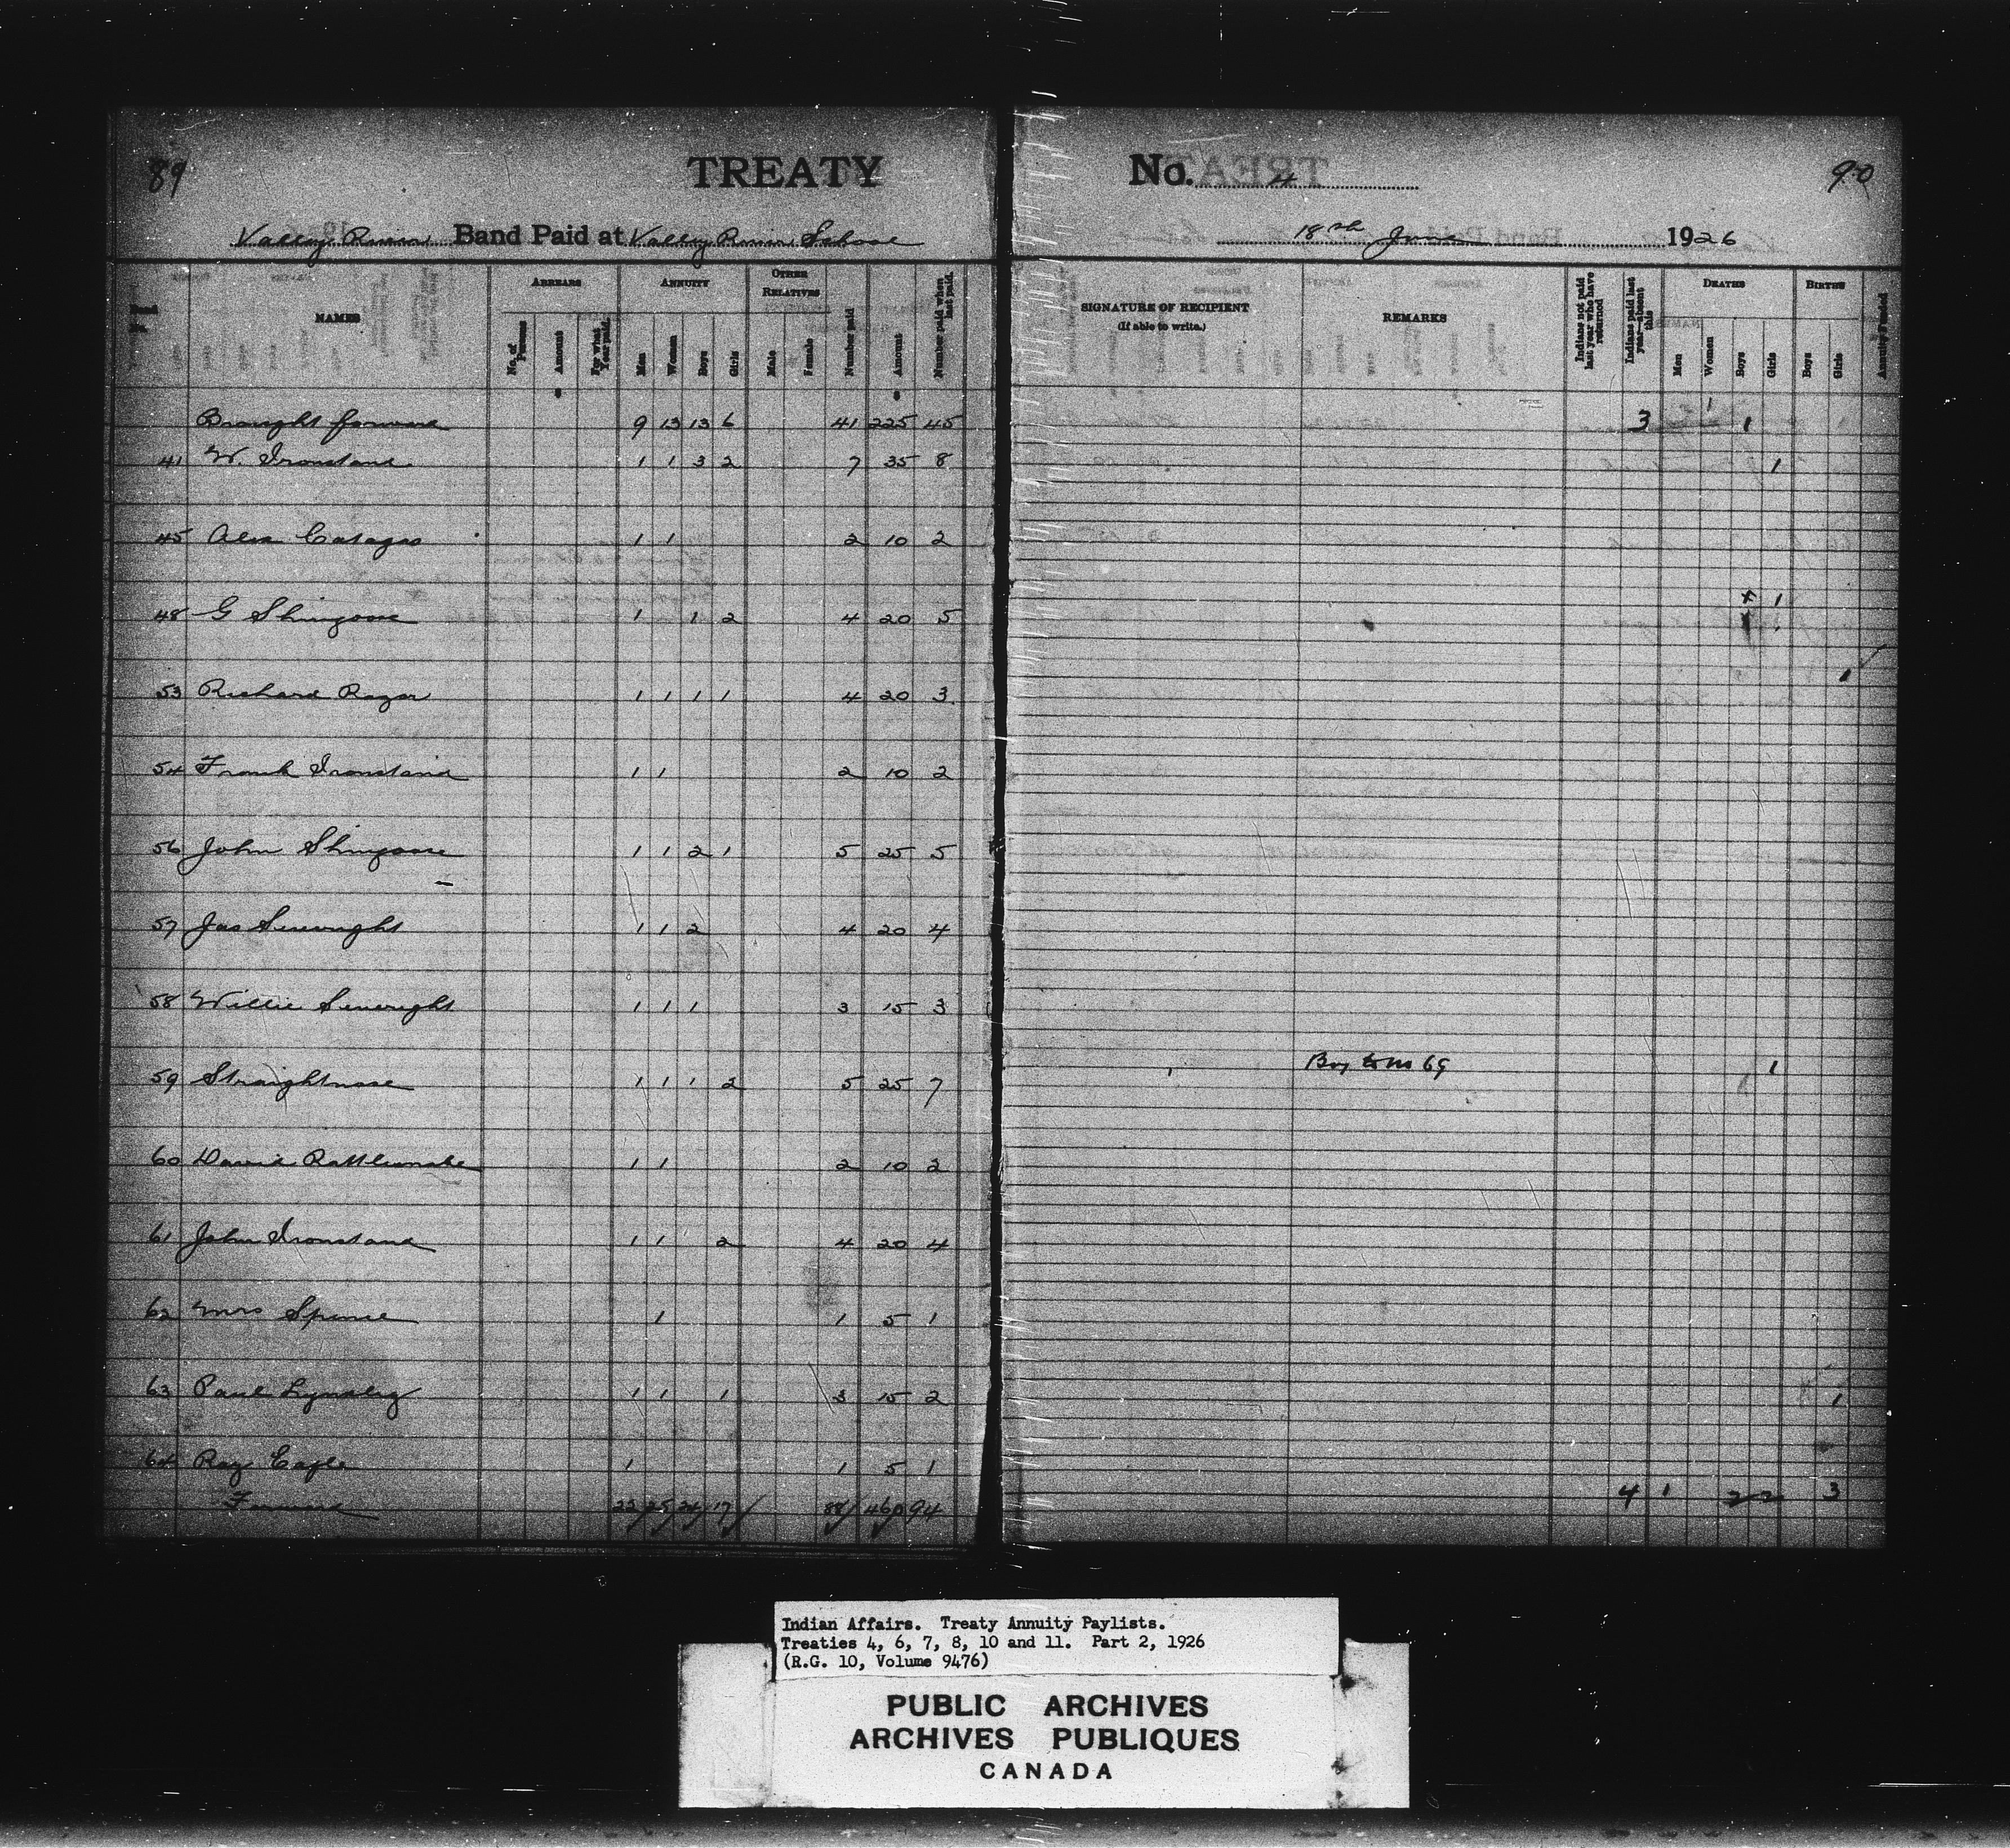 89 TREATY No. 4 90
Valley River Band Paid at Valley River School 18th June 1926
NAMES
ARREARS
ANNUITY
OTHER RELATIVES
No. of Persons
Amount
For what Year paid.
Men
Women
Boys
Girls
Male
Female
Number paid
Amount
Number paid when last paid.
SIGNATURE OF RECIPIENT
(If able to write.)
REMARKS
Indians not paid last year who have returned
Indians paid last year—absent this
DEATHS
Men
Women
Boys
Girls
BIRTHS
Boys
Girls
Annuity Funded
Brought forward 9 13 13 6 41 225 45 3 1 1
41 W. Ironstand 1 1 3 2 7 35 8 1
45 Alex Catagas 1 1 2 10 2
48 G Shingoose 1 1 2 4 20 5 1
53 Richard Razor 1 1 1 1 4 20 3 1
54 Frank Ironstand 1 1 2 10 2
56 John Shingoose 1 1 2 1 5 25 5
57 Jas Seewright 1 1 2 4 20 4
58 Willie Seewright 1 1 1 3 15 3
59 Straightnose 1 1 1 2 5 25 7 Boy to no 69 1
60 David Rattlesnake 1 1 2 10 2
61 John Ironstand 1 1 2 4 20 4
62 Mrs Spence 1 1 5 1
63 Paul Lynxleg 1 1 1 3 15 2 1
64 Roy Eagle 1 1 5 1
Forward 22 25 24 17 88 460 94 4 1 2 2 3
Indian Affairs. Treaty Annuity Paylists.
Treaties 4, 6, 7, 8, 10 and 11. Part 2, 1926
(R.G. 10, Volume 9476)
PUBLIC ARCHIVES
ARCHIVES PUBLIQUES
CANADA